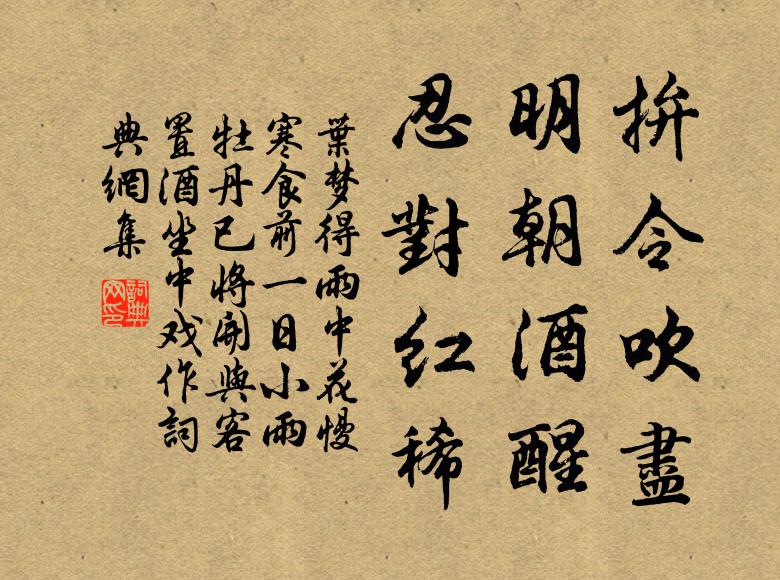 拚令吹盡
明朝酒醒
忍對红稀
葉梦得雨中花慢
寒食前一日小雨
牡丹已將開與客
置酒坐中戏作詞
典網集
詞典
网印